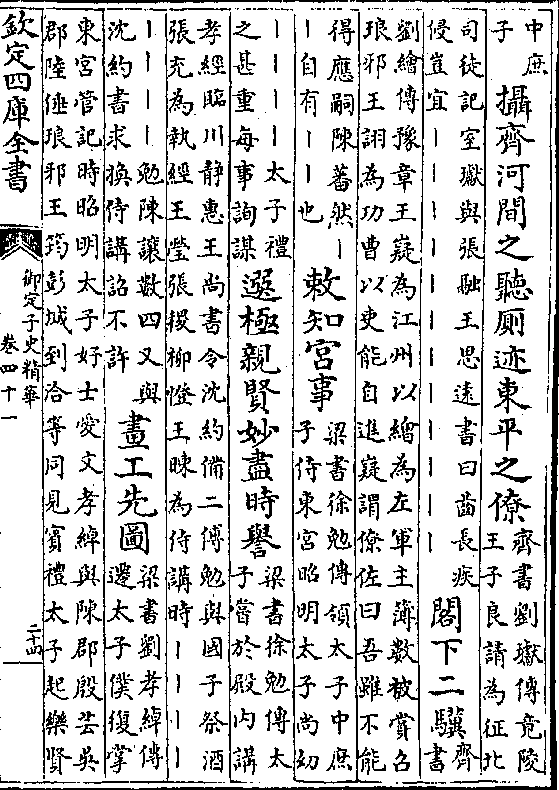 中庶
子
攝齊河間之聽廁迹東平之僚
齊書劉瓛傳竟陵
王子良請為征北
司徒記室瓛與張融王思遠書曰齒長疾
侵豈宜丨丨丨丨丨丨丨丨丨丨丨丨
閣下二驥
齊
書
劉繪傳豫章王嶷為江州以繪為左軍主簿數被賞召
琅邪王詡為功曹以吏能自進嶷謂僚佐曰吾雖不能
得應嗣陳蕃然丨
丨自有丨丨也
敕知宮事
梁書徐勉傳領太子中庶
子侍東宮昭明太子尚幼
丨丨丨丨太子禮
之甚重每事詢謀
選極親賢妙盡時譽
梁書徐勉傳太
子嘗於殿內講
孝經臨川靜惠王尚書令沈約備二傅勉與國子祭酒
張充為執經王瑩張稷柳憕王暕為侍講時丨丨丨丨
丨丨丨丨勉陳讓數四又與
沈約書求換侍講詔不許
畫工先圖
梁書劉孝綽傳
遷太子僕復掌
東宮管記時昭明太子好士愛文孝綽與陳郡殷芸吳
郡陸倕琅邪王筠彭城到洽等同見賓禮太子起樂賢
欽定四庫全書
御定子史精華
卷四十一
二十四